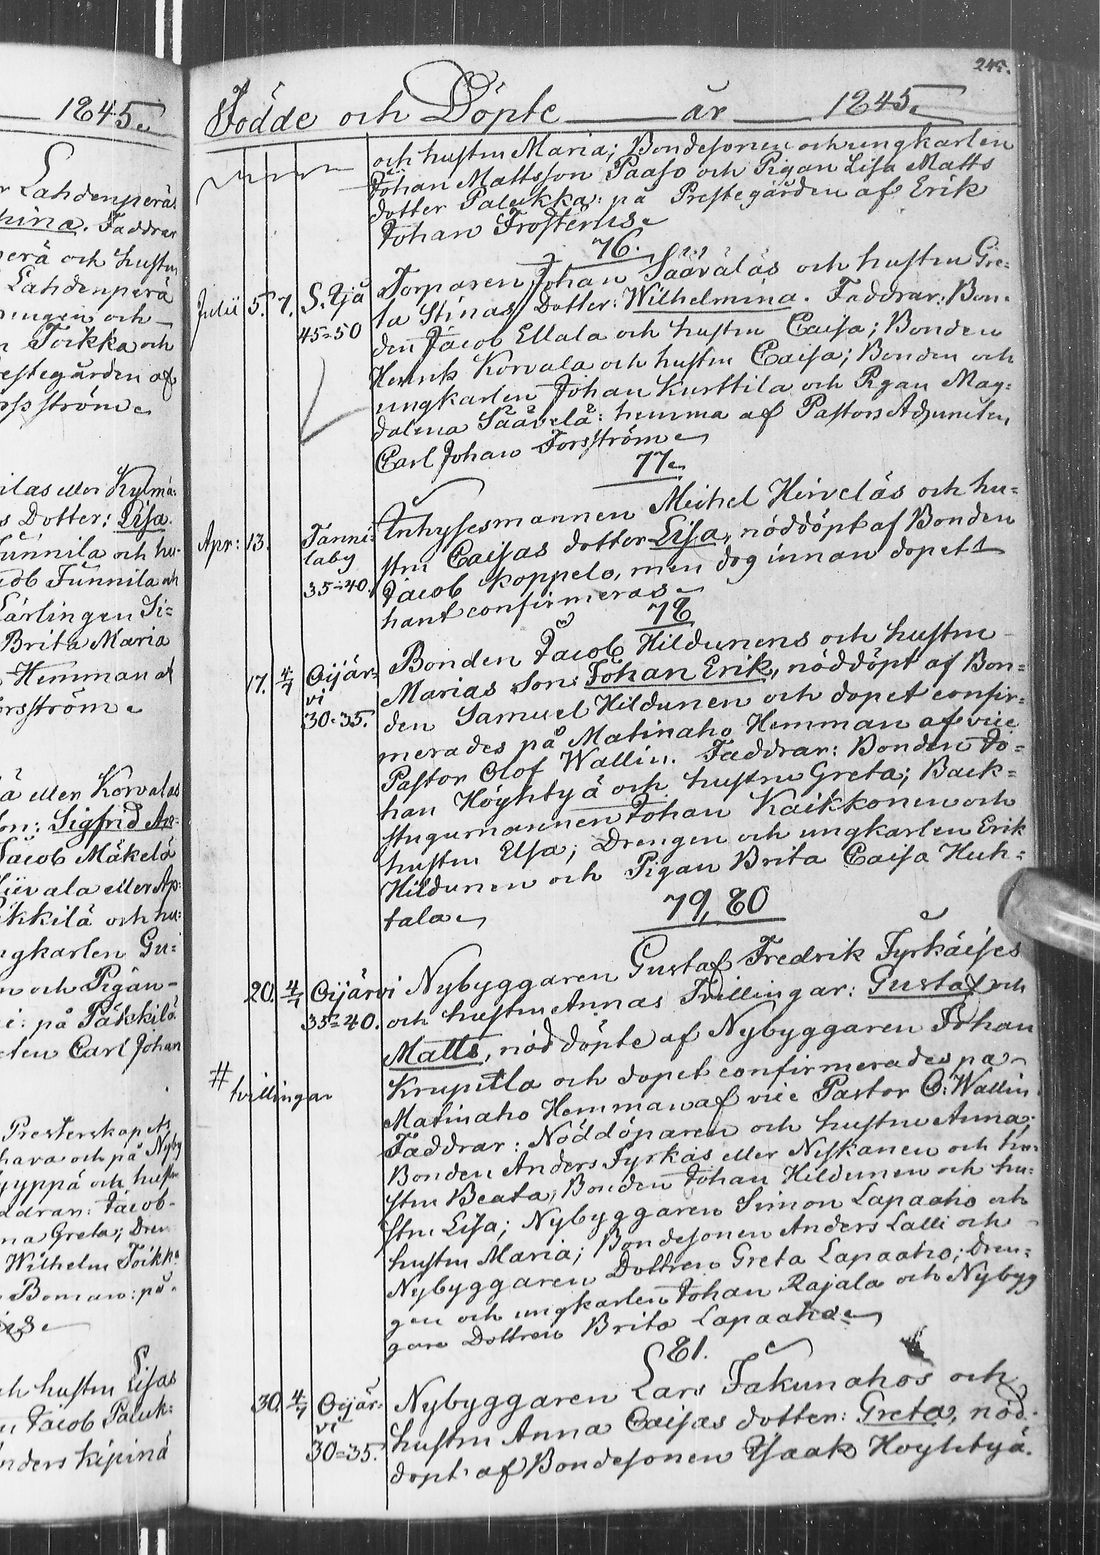 1845.
r Lahdenperäs
hina. Faddrar
perä och hustru
Lahdenperä
Drengen och
Toikka och
restegården af
orsström.
ilas eller Kylmä-
s Dotter: Lisa.
Tunnila och hu-
cob Tunnila och
Lärlingen Si=
Brita Maria
Hemman af
orsström.
ä eller Korvalas
on: Sigfrid An-
Jacob Mäkelä
Siivala eller Ap-
ikkilä och hu-
ngkarlen Gu-
n och Pigan
i: på Päkkilä
cten Carl Johan
Presterskapets
hava och på Nyby
yyppä och hust
addrar: Jacob
na Greta; Dren
Wilhelm Toikk
Boman: på
ch hustru Lisas
n Jacob Paluk:
nders Kipinä
245.
Födde och Döpte år 1845.
och hustru Maria; Bondesonen och ungkarlen
Johan Mattsson Paaso och Pigan Lisa Matts
dotter Palukka: på Prestegården af Erik
Johan Frosterus.
76.
Julii 5. 7. S. Ijä
45=50
Torparen Johan Sääväläs och hustru Gre-
ta Stinas Dotter: Wilhelmina. Faddrar: Bon-
den Jacob Ellala och hustru Caisa; Bonden
Henrik Korvala och hustru Caisa; Bonden och
ungkarlen Johan Kurttila och Pigan Mag-
dalena Säävelä: hemma af Pastors Adjuncten
Carl Johan Forsström.
77.
Apr: 13. Tanni-
laby
35=40.
Inhysesmannen Michel Hirveläs och hu=
stru Caisas dotter Lisa, nöddöpt af Bonden
Jacob Koppelo, men dog innan dopet
hant confirmeras.
78
17. 4/7 Oijär-
vi
30=35.
Bonden Jacob Hildunens och hustru
Marias Son: Johan Erik, nöddöpt af Bon=
den Samuel Hildunen och dopet confir-
merades på Matinaho Hemman af vice
Pastor Olof Wallin. Faddrar: Bonden Jo=
han Höyhtyä och hustru Greta; Back=
stugumannen Johan Kaikkonen och
hustru Elsa; Drengen och ungkarlen Erik
Hildunen och Pigan Brita Caisa Huh=
tala.
79, 80
20. 4/7 Oijärvi
35=40.
# tvillingar
Nybyggaren Gustaf Fredrik Tyrkäises
och hustru Annas Tvillingar: Gustaf och
Matts, nöddöpte af Nybyggaren Johan
Krupula och dopet confirmerades på
Matinaho Hemman af vice Pastor O: Wallin.
Faddrar: Nöddöparen och hustru Anna;
Bonden Anders Tyrkäs eller Niskanen och hu-
stru Beata; Bonden Johan Hildunen och hu-
stru Lisa; Nybyggaren Simon Lapaaho och
hustru Maria; Bondesonen Anders Lalli och
Nybyggaren Dottren Greta Lapaaho; Dren=
gen och ungkarlen Johan Rajala och Nybyg
gare Dottren Brita Lapaaho.
81.
30. 4/7 Oijär-
vi
30=35.
Nybyggaren Lars Takunahos och
hustru Anna Caisas dotter: Greta, nöd-
döpt af Bondesonen Ysaak Hoyhtyä.